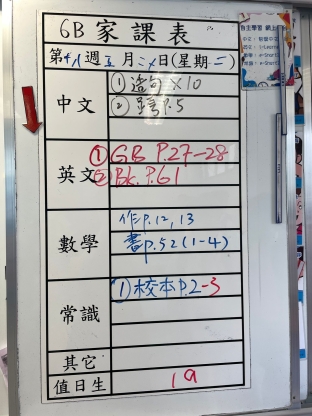 6B 家課表
自主學習 網上
第十八週 五月二X日(星期二)
中文
① 造句 X10
② 書 P.5
英文
① GB P.27-28
② Bk. P.61
數學
作P.12, 13
書P.52 (1-4)
常識
① 校本 P.2-3
其它
值日生
19